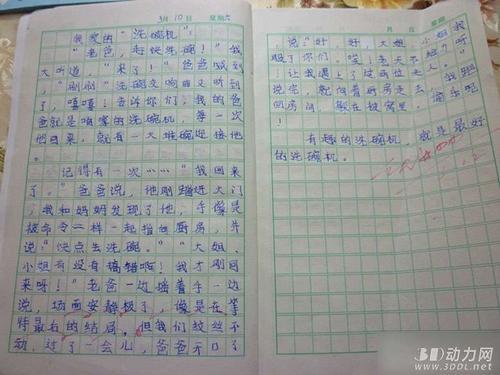 3月10日 星期六
我家的“洗碗机”
“老爸，赶快洗碗！”我
大叫道，“来了！”爸爸喊到
，“刷刷”洗碗交响曲又听到
了，嘻嘻！告诉你们，我的爸
爸就是咱家的洗碗机，等一次
他回来，就有一大堆碗迎接他
。
记得有一次……“我回来
了。”爸爸说，他刚踏进大门
，我和妈妈发现了他，手像是
被命令一样一起指向厨房，并
说“快点去洗碗。”“大姐、
小姐有没有搞错啊！我才刚回
来呀！”老爸一边搓着手一边
说，场面安静极了，像是在等
待最后的结局，但我们纹丝不
动，过了一会儿，爸爸开口了
月 日 星期
，说“好，好，大姐、小姐我
服了你们，唉！老天不
！让我遇上了这两位 人。”
说完，就向着厨房走去
回房间，躲在被窝里，偷乐呢
！
有趣的洗碗机，就是最好
的洗碗机。
3D动力网
www.3DDL.net